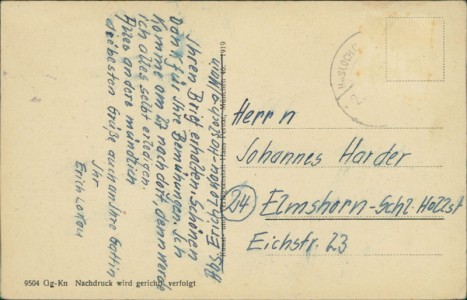 Ihren Brief erhalten Schönen
Dank für Ihre Bemühungen. Ich
Komme am 27 nach dort, dann werde
ich alles selbst erledigen
Alles andere mündlich
die besten Grüße auch an Ihre Gattin
Ihr
Erich
Herrn
Johannes Harder
24 Elmshorn-Schl. Holst
Eichstr. 23
9504 Og-Kn Nachdruck wird gerichtl. verfolgt